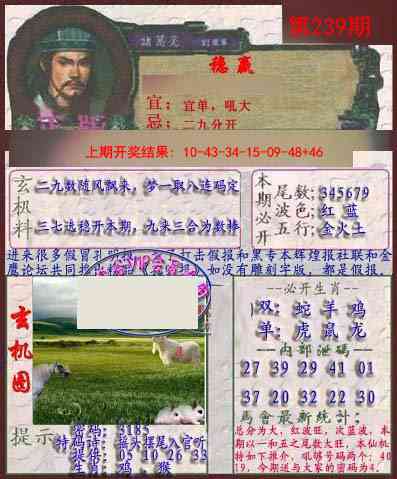 第239期
諸葛亮
稳赢
宜：宜单，吼大
忌：二九分开
上期开奖结果：10-43-34-15-09-48+46
玄机料
二九数随风飘来，梦一取八连码定
三七选稳开本期，九来三合为数棒
本期必开
尾数;345679
波色;红 蓝
五行;金火土
进来很多假冒孔明报
打击假报和黑专本辉煌报社联和金
鹰论坛共同推出
如没有雕刻字版，都是假报，
玄机图
--必开生肖--
双: 蛇 羊 鸡
单: 虎 鼠 龙
--内部泄码--
27 39 29 41 01
37 20 32 22 30
馬會最新统计:
总分为大，红波旺，次蓝波，本
期以一和五之尾数大旺，本仙机
特如下推介，吼够号码两个：40
19，今期送与大家的密码为4.
提示
密码: 3185
特码诗: 接头摆尾入官听
提供: 05 10 26 33
生肖: 鸡，猴